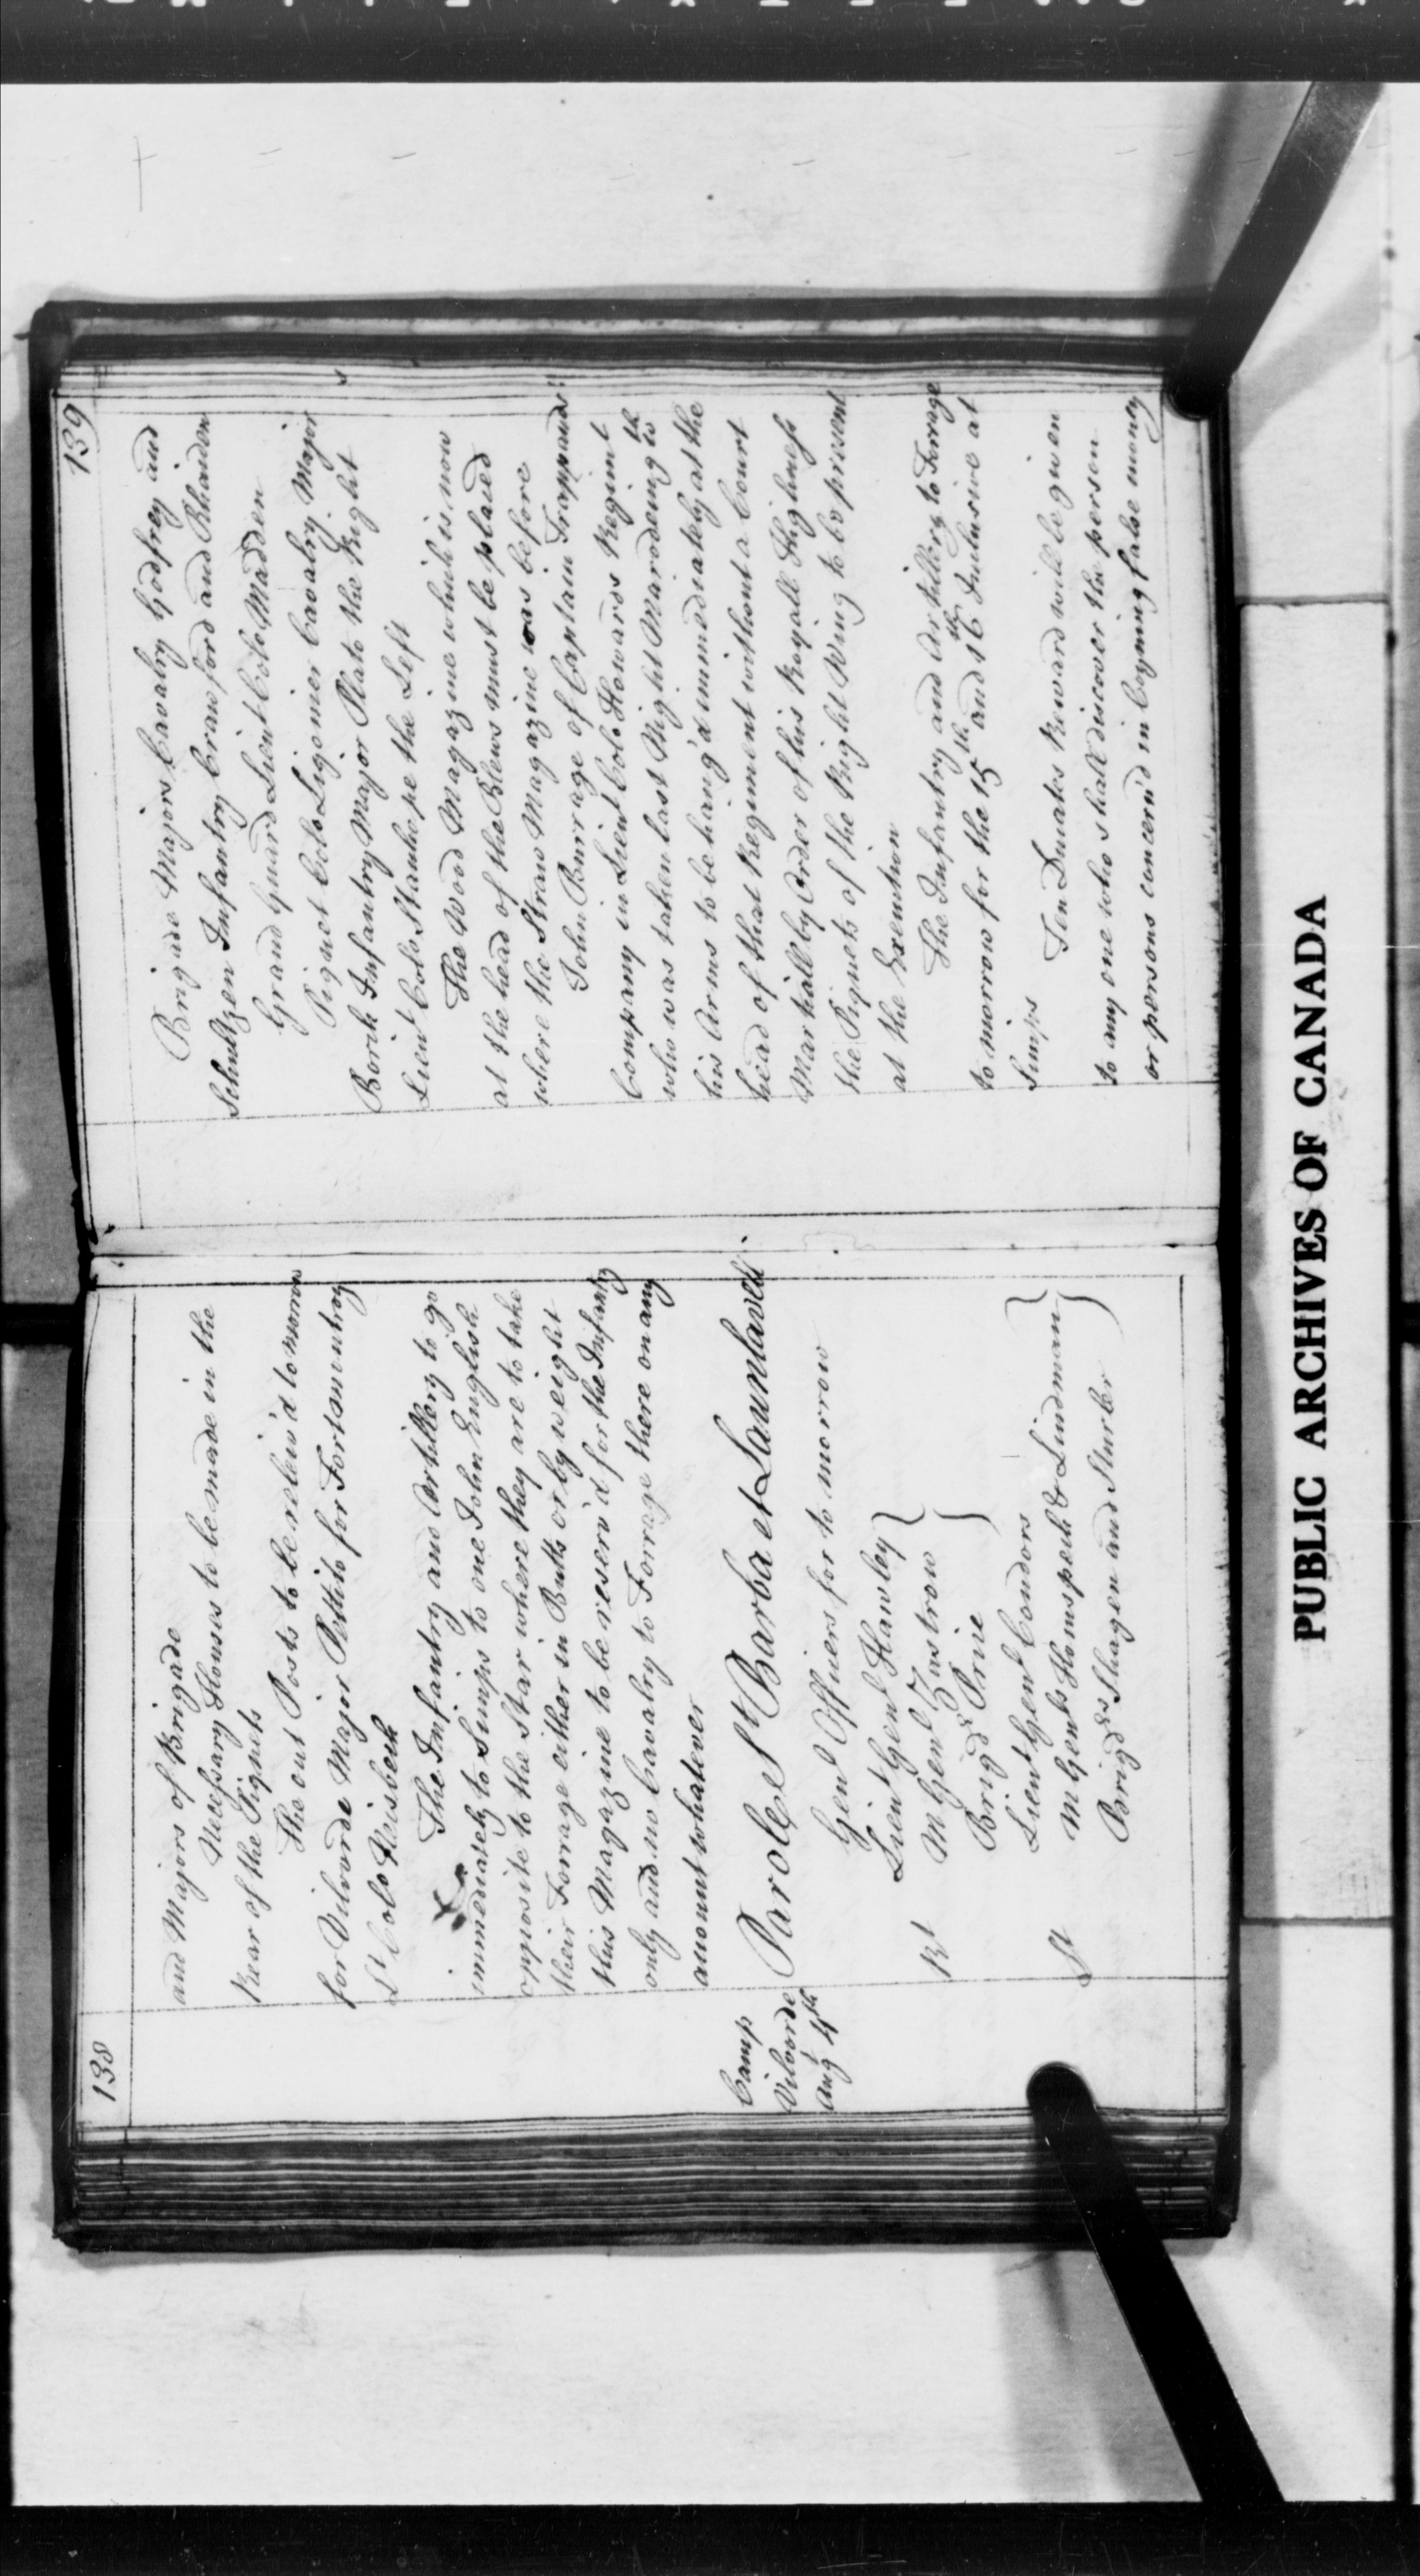 138
and Majors of Brigade
Necessary Houses to be made in the
Rear of the Piquets
The out Posts to be reliev'd to morrow
for Vilvorde Major Pettito for Fortanentroy
Lt Colo Heisbeck
The Infantry and Artillery to go
immediately to Simps to one John English
opposite to the Star where they are to take
their Forrage either in Butts or by weight
this Magazine to be reserv'd for the Infantry
only and no Cavalry to Forrage there on any
account whatever
Camp
Vilvorde
Augt 4th
Parole St Barba et
Genl Officers for to morrow
Lieut Genl Hawley
Rt M Genl Zastrow
Brigdr Price
Lieut Genl Coudors
Lt M Genls Homspech & Lindman
Brigdrs Shagen and Sturler
139
Brigade Majors Cavalry Godfrey and
Schultzen Infantry Crawford and Rhaden
Grand Guard Lieut Colo Madden
Piquet Colo Ligonier Cavalry Major
Borck Infantry Major Plato the Right
Lieut Colo Stanhope the Left
The Wood Magazine which is now
at the head of the Blews must be placed
where the Straw Magazine was before
John Burrage of Captain Trappauds
Company in Lieut Colo Howards Regimt
who was taken last Night Marodeing with
his Arms to be hang'd immediately at the
head of that Regiment without a Court
Martiall by Order of his Royall Highness
the Piquets of the Right Wing to be present
at the Execution
The Infantry and Artillery to Forrage
to morrow for the 15th and 16th Inclusive at
Simps
Ten Ducats Reward will be given
to any one who shall discover the person
or persons concern'd in Coyning false money
PUBLIC ARCHIVES OF CANADA